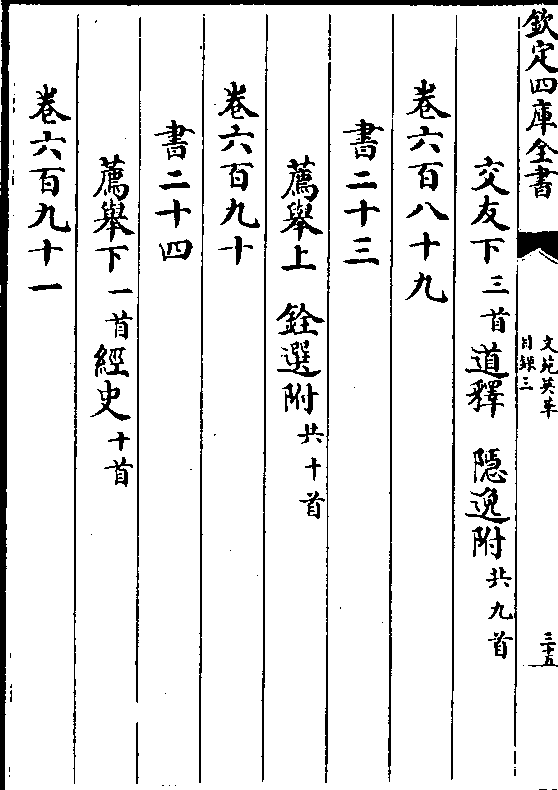 欽定四庫全書
文苑英華
目録三
三十五
交友下三首道釋 隱逸附共九首
卷六百八十九
書二十三
薦舉上 銓選附共十首
卷六百九十
書二十四
薦舉下一首經史十首
卷六百九十一